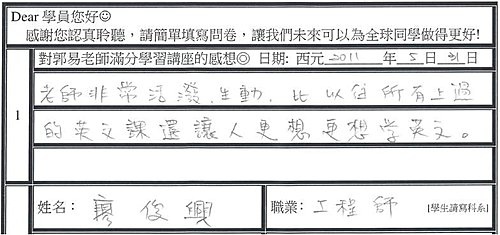 Dear 學員您好☺
感謝您認真聆聽，請簡單填寫問卷，讓我們未來可以為全球同學做得更好!
對郭易老師滿分學習講座的感想◎ 日期: 西元 2011 年 5 日 21 日
1
老師非常活潑.生動,比以往所有上過
的英文課還讓人更想更想学英文。
姓名： 廖俊興 職業： 工程師 [學生請寫科系]